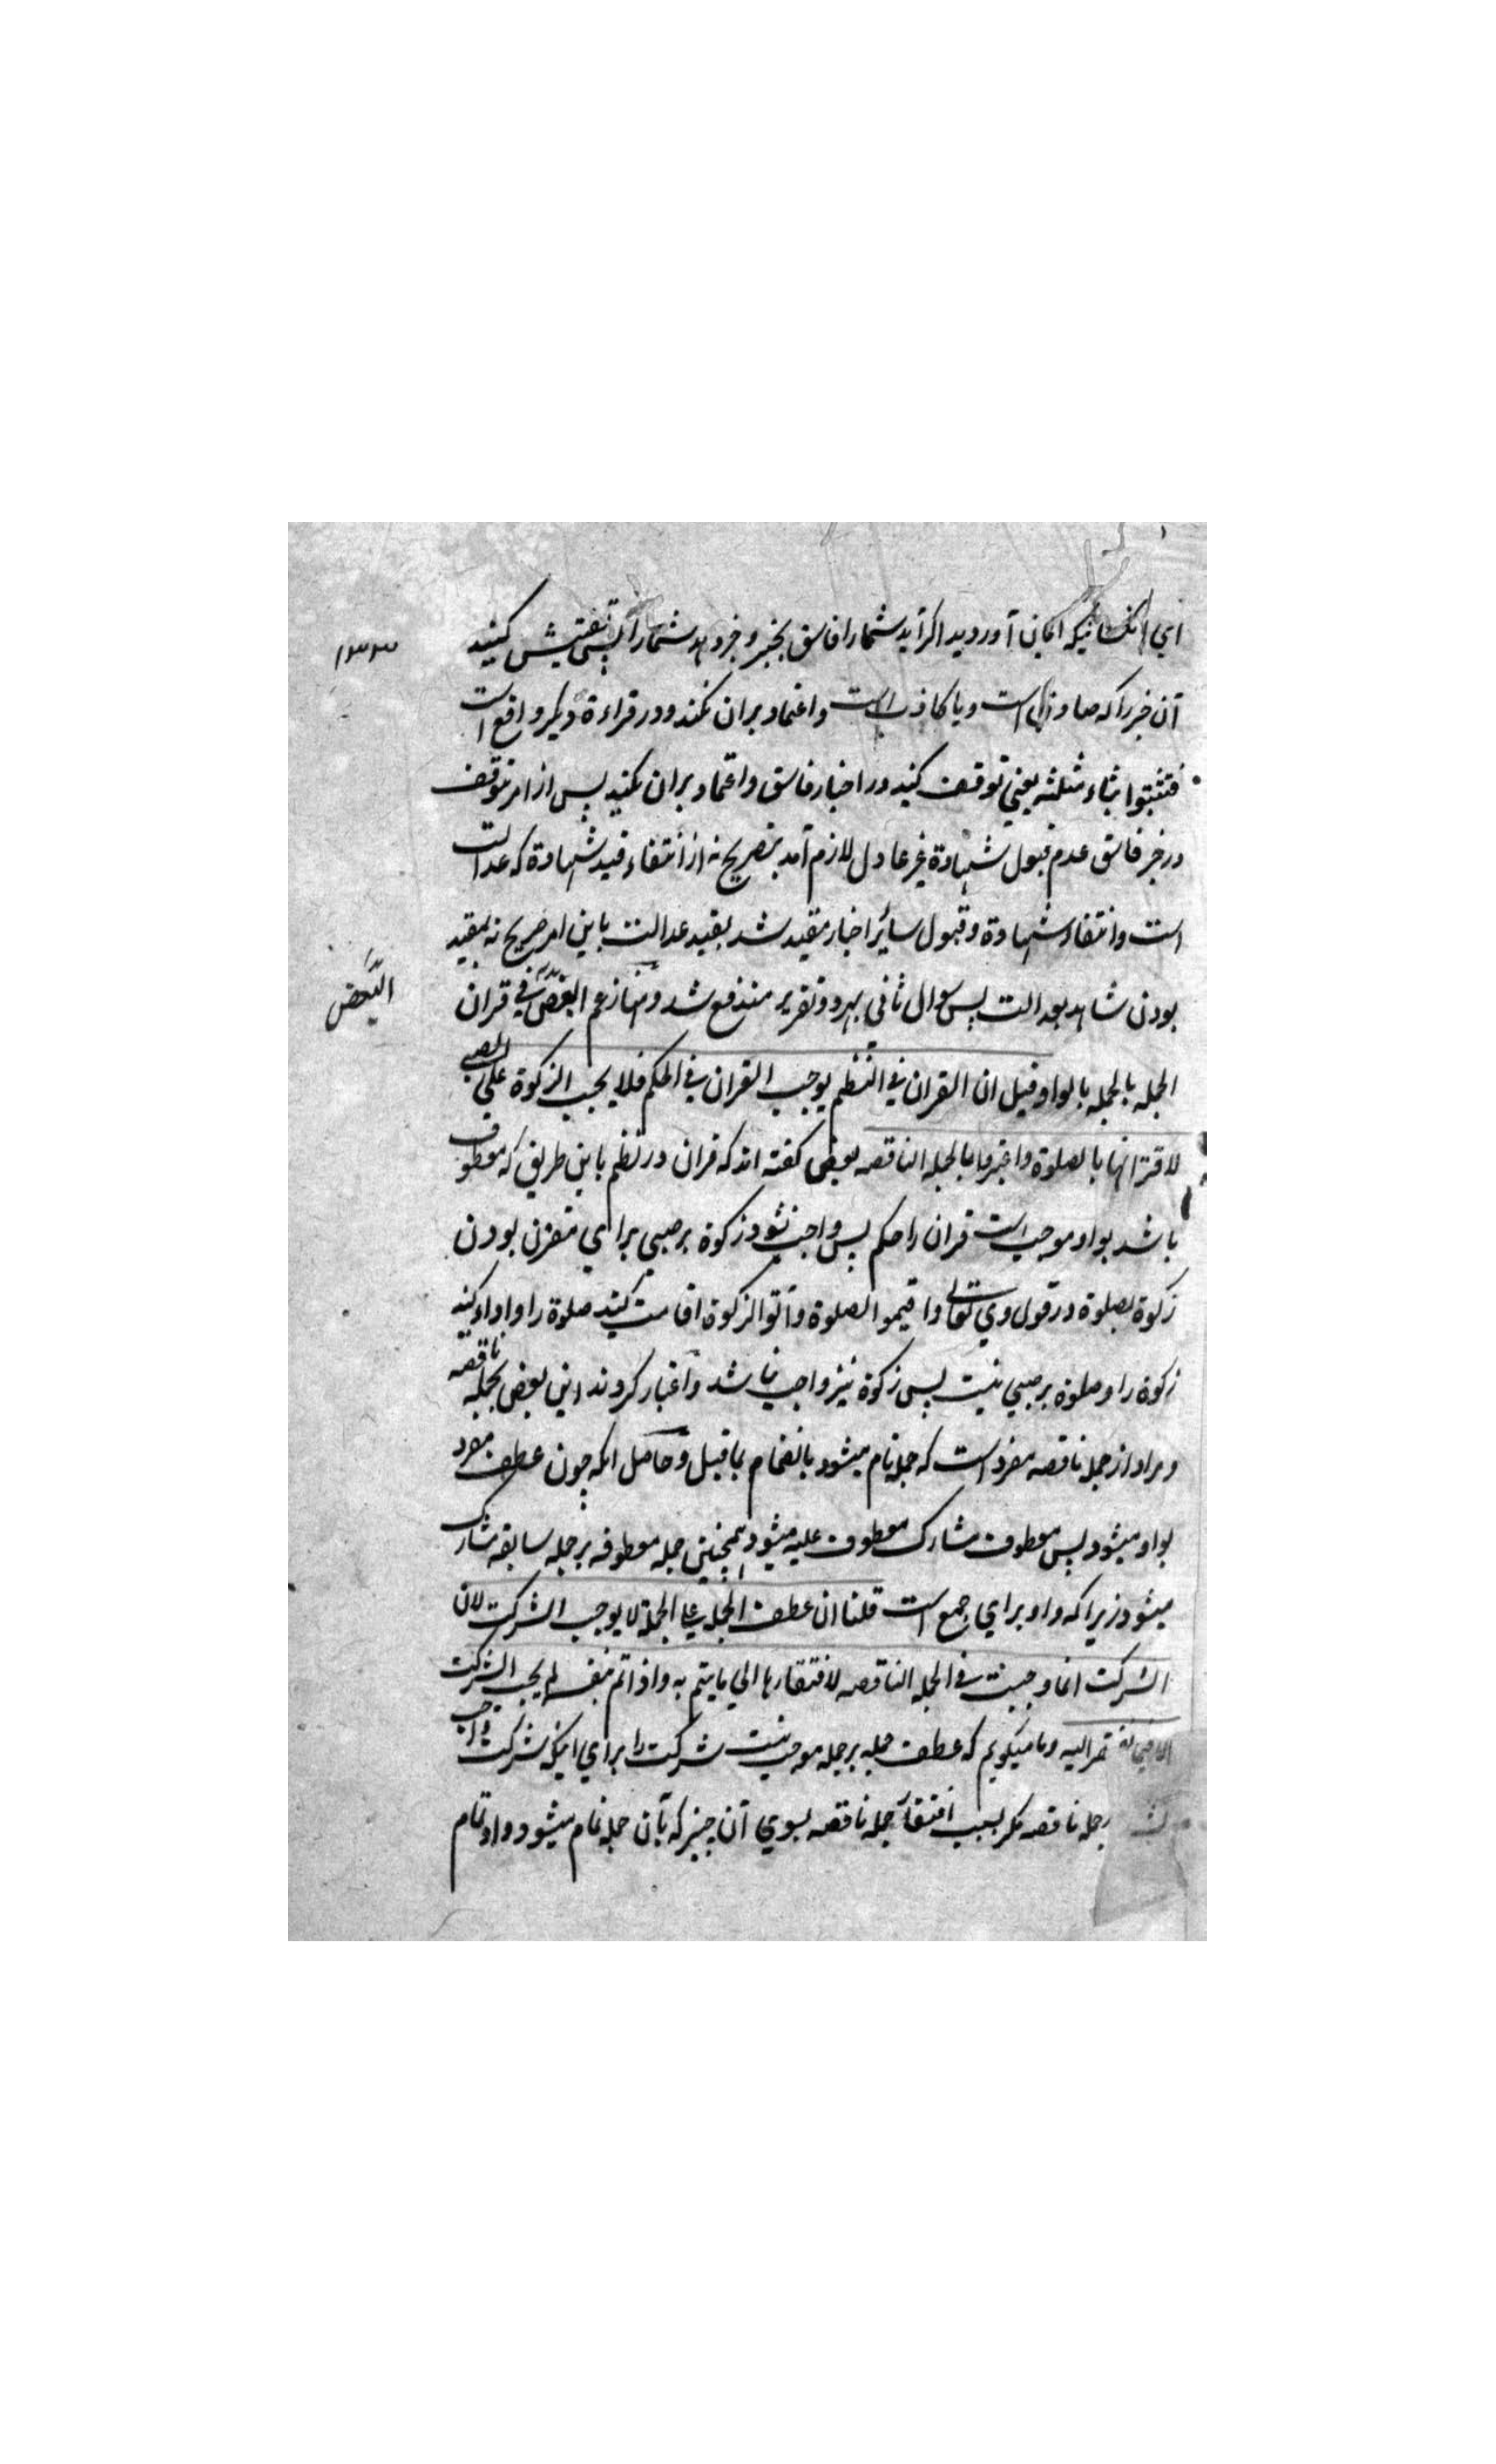 اي انكسانيكه ايمان آورديد اكر آيد شمارا فاسق بخبر و خبر دهد شمارا پس تفتيش كنيد
۱۳۳
آن خبر را كه صادق است ويا كاذب است واعتماد بران نكند ودر قراءة ديكر واقع است
فتثبتوا بثاء مثلثه يعني توقف كنيد در اخبار فاسق واعتماد بران نكنيد پس از امر توقف
در خبر فاسق عدم قبول شهادة غير عادل لازم آمد بتصريح نه از انتفاء قيد شهادة كه عدالت
است وانتفاء شهادة وقبول سائر اخبار مقيد شد بقيد عدالت باين امر صريح نه بمقيد
بودن شاهد بعدالت پس سوال ثاني بهر دو تقرير مندفع شد ومنها زعم البعض في قران
البعض
الجمله بالجمله بالواو قيل ان القران في النظم يوجب القران في الحكم فلا يجب الزكوة على الصبي
لاقترانها بالصلوة واعتبروا بالجمله الناقصه بعضى كفته اند كه قران در نظم باين طريق كه معطوف
باشد بواو موجب است قران را حكم پس واجب نشود زكوة بر صبي براي مقترن بودن
زكوة بصلوة در قول وي تعالى واقيموا الصلوة وآتوا الزكوة اقامت كنيد صلوة را واداء كنيد
زكوة را وصلوة بر صبي نيست پس زكوة نيز واجب نباشد واعتبار كردند اين بعض بجمله ناقصه
ومراد از جمله ناقصه مفرد است كه جمله تام ميشود بانضمام بما قبل وحاصل انكه چون عطف مفرد
بواو ميشود پس معطوف مشارك معطوف عليه ميشود همچنين جمله معطوفه بر جمله سابقه مشارك
ميشود زيرا كه واو براي جمع است قلنا ان عطف الجملة على الجملة لا يوجب الشركت لان
الشركت انما وجبت في الجمله الناقصه لافتقارها الي ما يتم به واذا تم بنفسه لم يجب الشركت
الا فيما تفتقر اليه وما ميكويم كه عطف جمله بر جمله موجب نيست شركت را براي اينكه شركت واجب
جمله ناقصه مكر بسبب افتقار جمله ناقصه بسوي آن چيز كه بآن جمله تام ميشود واو تمام